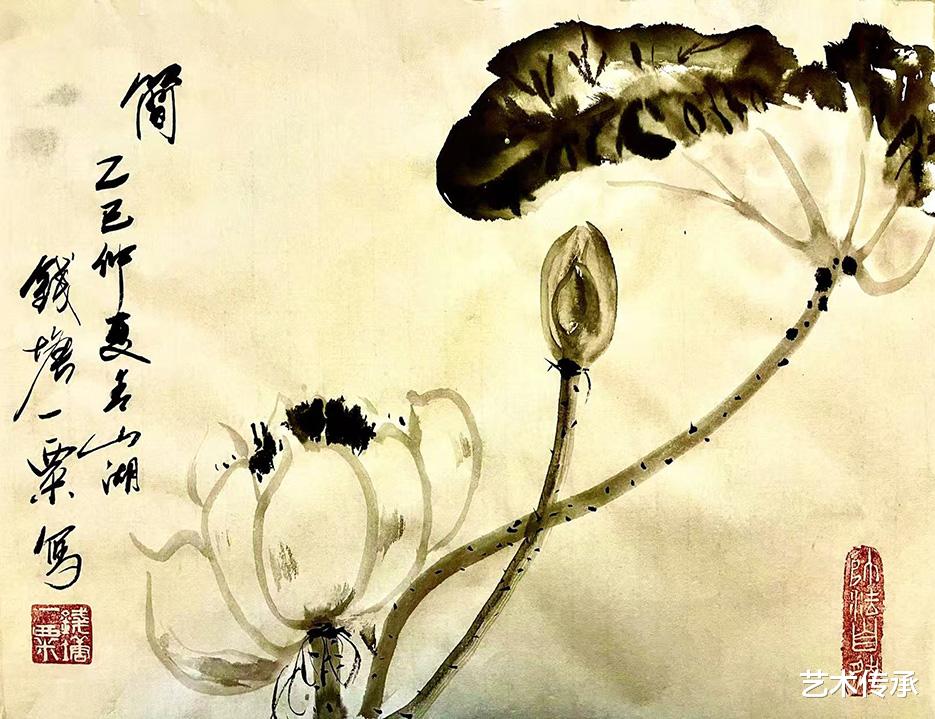 簡
乙巳仲夏於山湖
錢塘一粟寫
錢塘一粟
師法自然
艺术传承